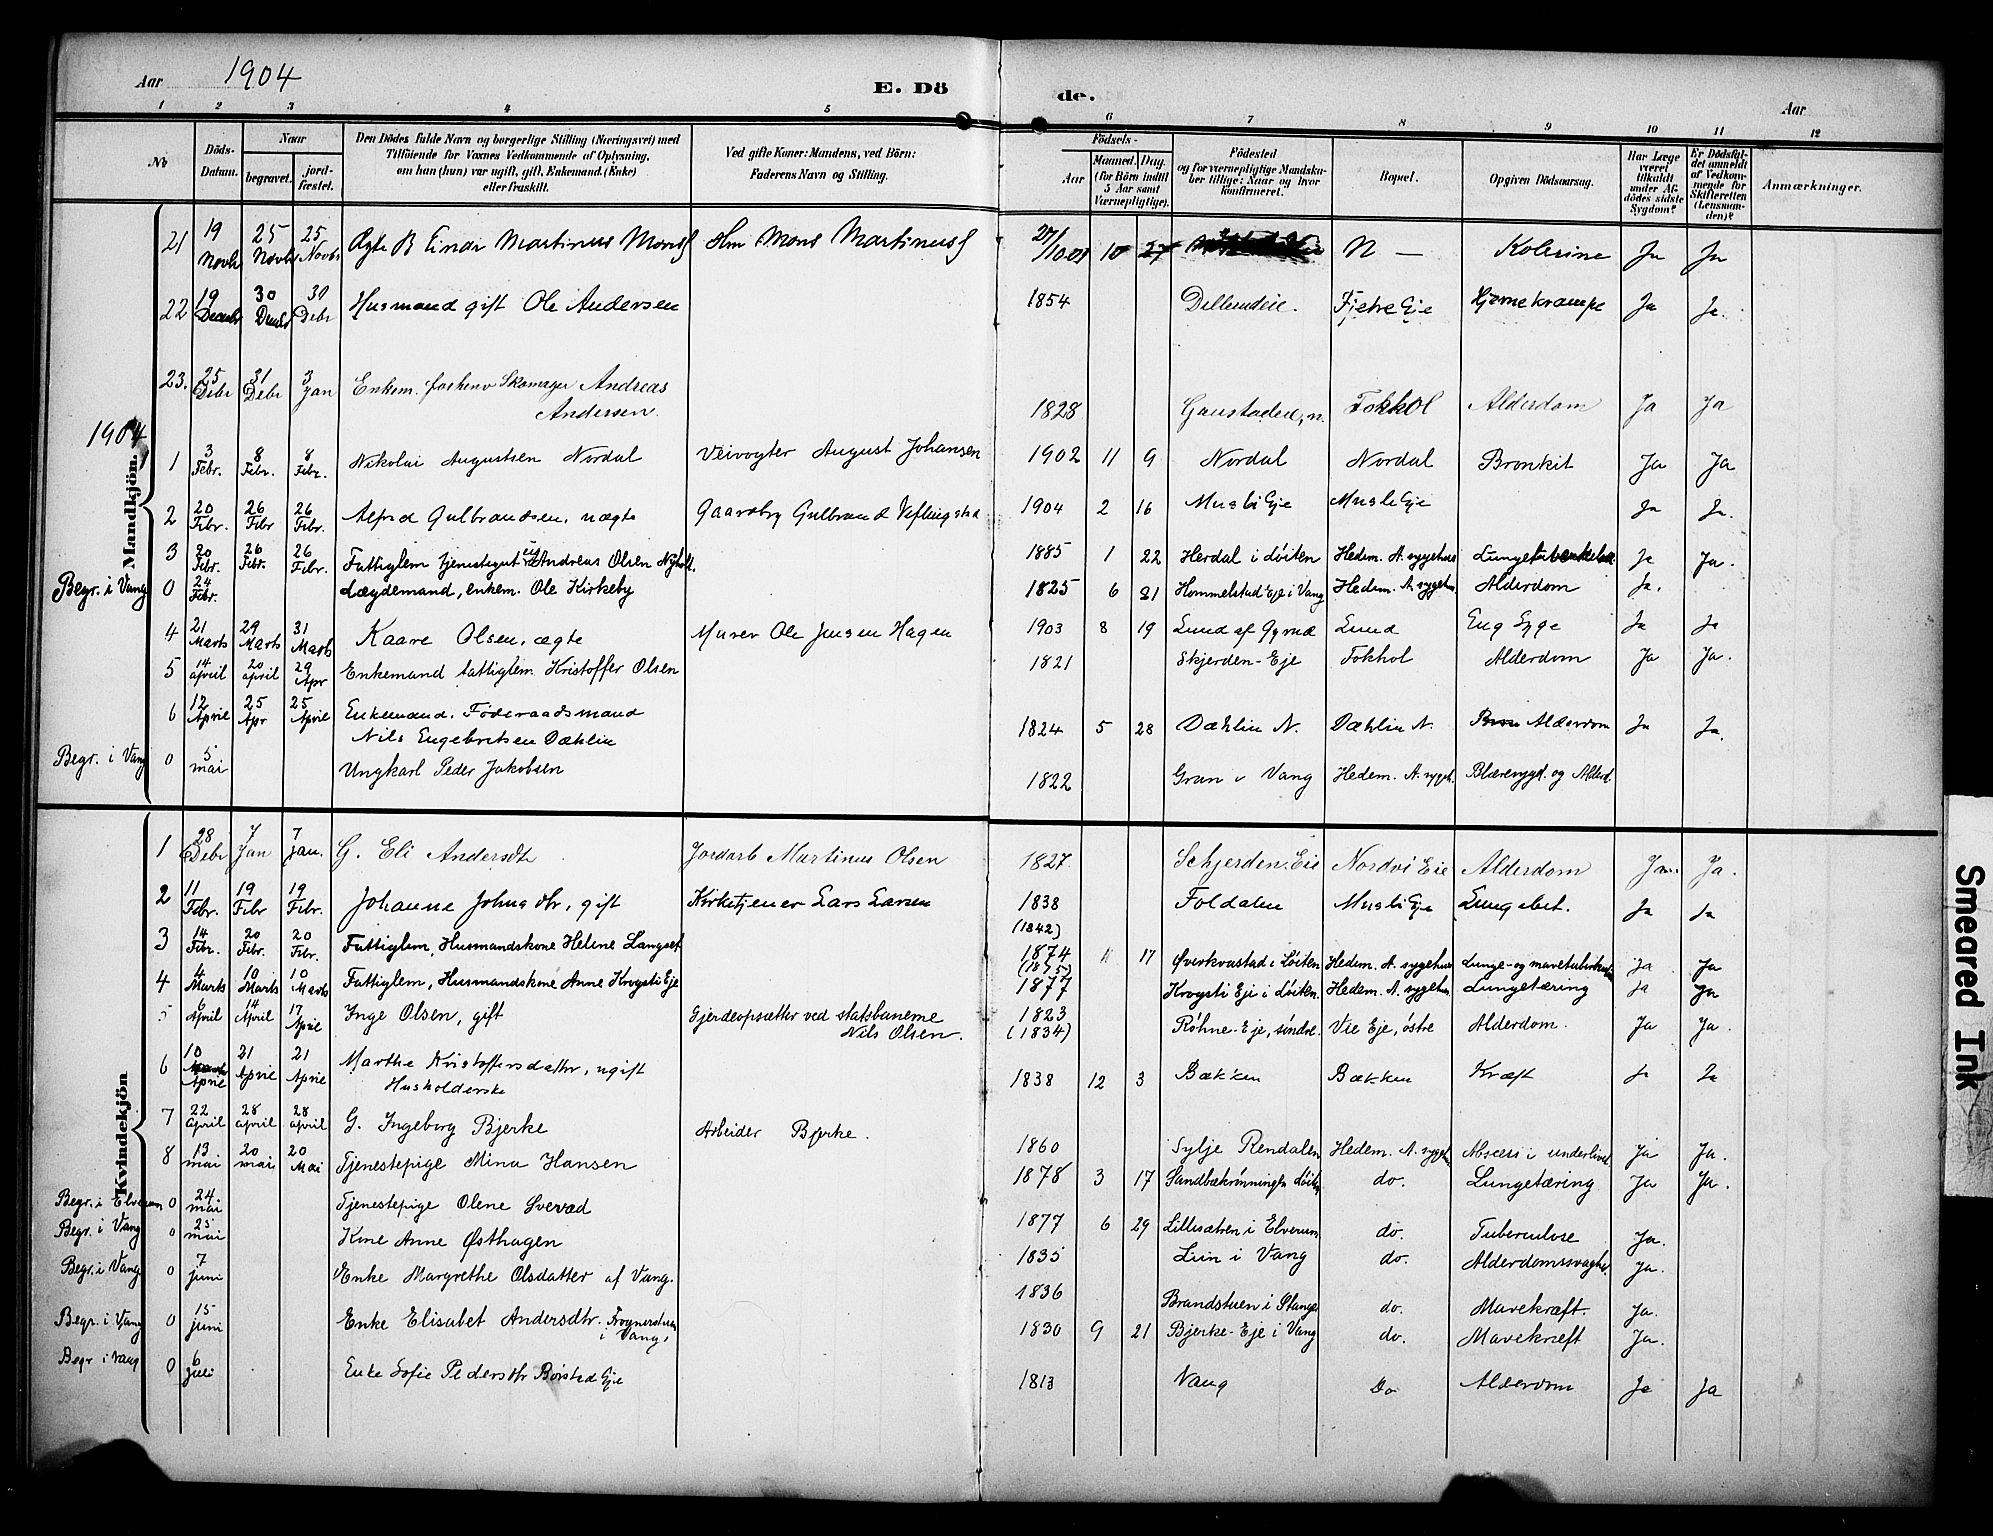 Aar 1904
E. Dö
de.
Aar
1 2 3 4 5 6 7 8 9 10 11 12
No
Döds-Datum.
Naar
begravet.
jord-fæstet.
Den Dödes fulde Navn og borgerlige Stilling (Næringsvei) med
Tilföiende for Voxnes Vedkommende af Oplysning,
om han (hun) var ugift, gift, Enkemand (Enke)
eller fraskilt.
Ved gifte Koner: Mandens, ved Börn:
Faderens Navn og Stilling.
Födsels-
Aar
Maaned. Dag.
(for Börn indtil
5 Aar samt
Værnepligtige).
Födested
og for værnepligtige Mandskaber tillige: Naar og hvor konfirmeret.
Bopæl.
Opgiven Dödsaarsag.
Har Læge været tilkaldt under Afdödes sidste Sygdom?
Er Dödsfaldet anmeldt af Vedkommende for Skifteretten (Lensmanden)?
Anmærkninger.
Mandkjön.
21 19 Novb 25 Novb 25 Novbr Ægte B Einar Martinus Mons Hm Mons Martinus 27/10.03 10 27 N — Kolerine Ja Ja
22 19 Decembr 30 Decbr 30 Debr Husmand gift Ole Andersen 1854 Fjetre Eje Hjernekrampe Ja Ja.
23. 25 Debr 31 Debr 3 Jan Enkem. forhenv Skomager Andreas
Andersen. 1828 Fokhol Alderdom Ja Ja
1904
1 3 Febr. 8 Febr. 8 Febr. Nikolai Augustsen Nordal Veivogter August Johansen 1902 11 9 Nordal Nordal Bronkit Ja Ja
2 20 Febr. 26 Febr 26 Febr. Alfred Gulbrandsen, uægte Gaardbg Gulbrand Veflingstad 1904 2 16 Musli Eje Musli Eje Ja Ja.
3 20 Febr. 26 Febr. 26 Febr. Fattiglem tjenestegut Andreas Olsen 1885 1 22 Herdal i Løiten Hedem. A. sygehus Ja Ja.
Begr. i Vang 0 24 Febr. Lægdemand, enkem. Ole Kirkeby 1825 6 21 Hommelstad Eje i Vang Hedem. A. sygehus Alderdom Ja.
4 21 Marts 29 Marts 31 Marts Kaare Olsen, ægte Murer Ole Jensen Hagen 1903 8 19 Lund af Lund Eng Syge Ja Ja
5 14 april 20 april 29 Apr Enkemand fattiglem Kristoffer Olsen 1821 Skjerden-Eje Fokhol Alderdom Ja Ja.
6 12 Aprie 25 Apr 25 Aprie Enkemand. Føderaadsmand
Nils Engebretsen Dæhlin 1824 5 28 Dæhlin N. Dæhlin N. Alderdom Ja Ja.
Begr. i Vang 0 5 mai Ungkarl Peder Jakobsen 1822 Gran i Vang Hedem. A. sygeh. Blæresygd. og Alderd.
Kvindekjön
1 28 Debr 7 Jan 7 Jan. G. Eli Andersdtr Jordarb Martinus Olsen 1827 Schjerden Eie Nordvi Eie Alderdom Ja. Ja.
2 11 Febr. 19 Febr 19 Febr. Johanne Johnsdtr, gift Kirketjener Lars Larsen 1838 Foldalen Musli Eje Lungebet. Ja Ja
3 14 Febr. 20 Febr. 20 Febr. Fattiglem, Husmandskone Helene Langset (1842) 1874 11 17 Øverkvastad i Løiten Hedem. A. sygehus Lunge- og mavetuberkul Ja Ja
4 4 Marts 10 Marts 10 Marts Fattiglem, Husmandskone Anne Krogsti Eje (1875) 1877 Krogsti Eje i Løiten. Hedem. A. sygehus. Lungetæring Ja Ja
5 6 April 14 April 17 April Inge Olsen, gift Gjerdeopsætter ved statsbanerne
Nils Olsen. 1823 (1834) Røhne-Eje, søndre. Vie Eje, østre Alderdom. Ja Ja.
6 10 Aprie 21 Aprie 21 Aprie Marthe Kristoffersdatter, ugift
Husholderske 1838 12 3 Bækken Bækken Kræft Ja Ja
7 22 april 28 april 28 april G. Ingeborg Bjerke Arbeider Bjerke. 1860 Sylje Rendalen Hedem. A. sygeh. Absces i underlivet Ja Ja.
8 13 mai 20 mai 20 Mai Tjenestepige Mina Hansen 1878 3 17 do. Lungetæring Ja Ja.
Begr. i Elverum 0 24 mai Tjenestepige Olene Svevad 1877 6 29 Lillesætren i Elverum do. Tuberculose Ja.
Begr. i Vang 0 25 mai Kone Anne Østhagen 1835 Lun i Vang do. Alderdomssvaghd. Ja.
Begr. i Vang 0 7 juni Enke Margrethe Olsdatter af Vang. 1836 Brandstuen i Stange do. Mavekræft. Ja.
Begr. i Vang 0 15 juni Enke Elisabet Andersdtr. Frognerstuen
i Vang, 1830 9 21 Bjerke-Eje i Vang do. Mavekræft Ja.
Begr i Vang 0 6 juli Enke Sofie Pedersdtr Børstad Eje 1813 Vang Do Alderdom Ja Ja
Smeared Ink